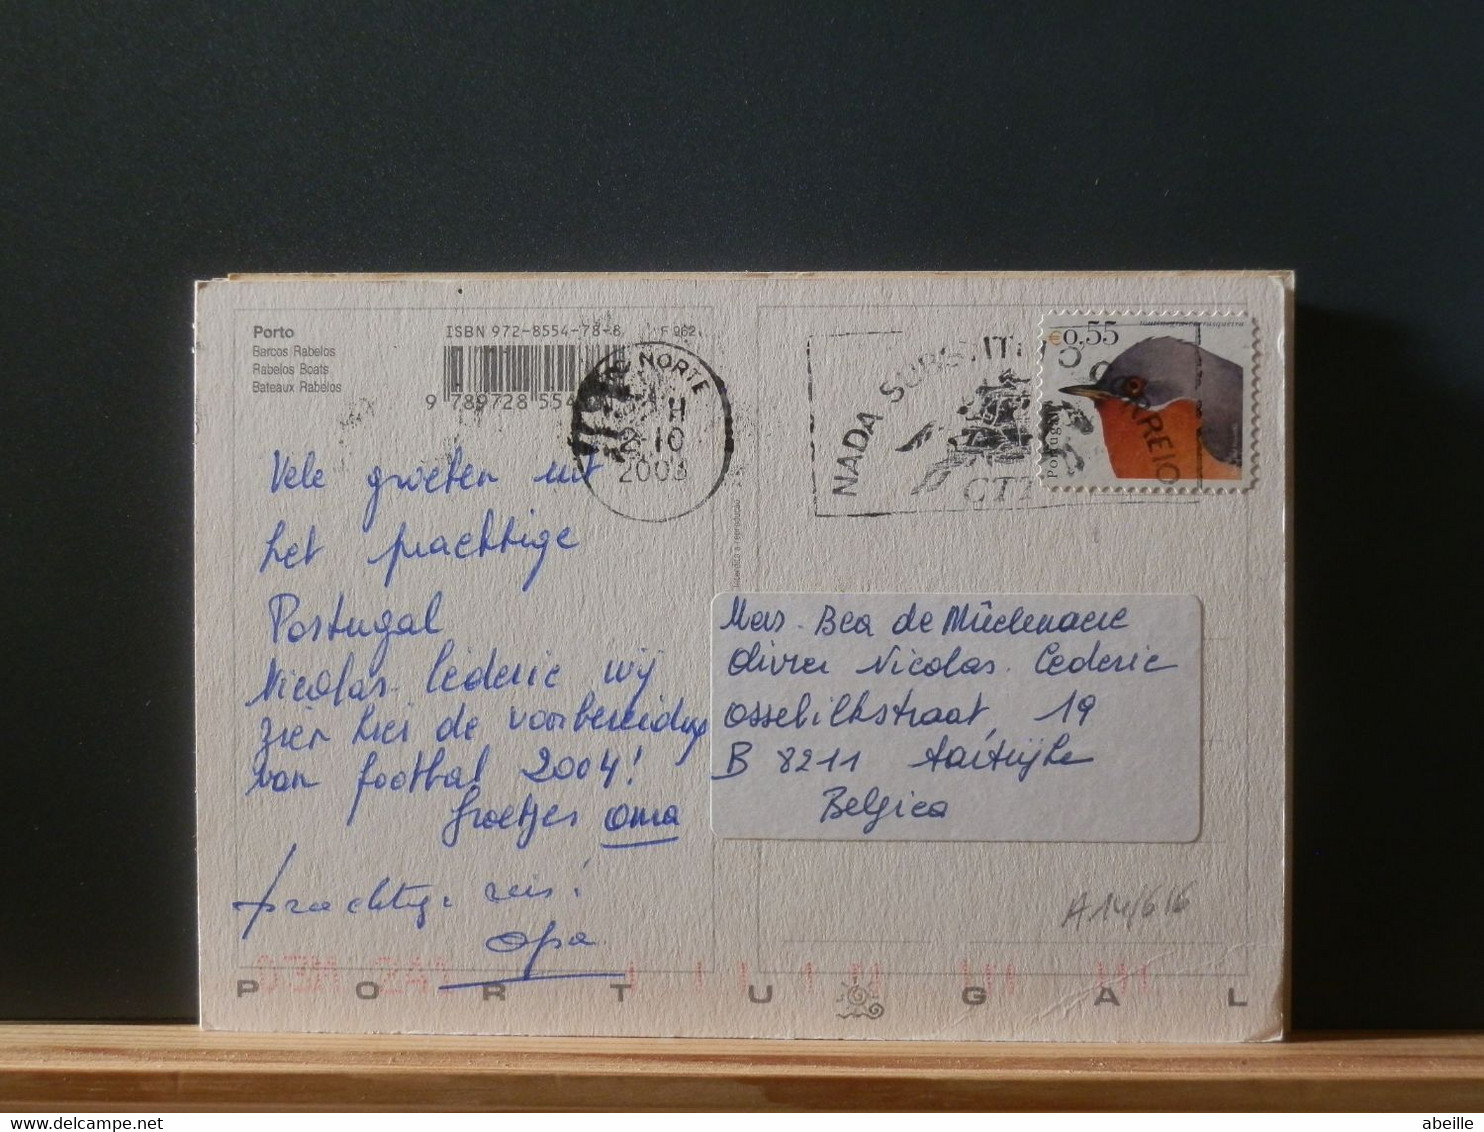 Porto
Barcos Rabelos
Rabelos Boats
Bateaux Rabelos
ISBN 972-8554-78-8
9 789728 554
NORTE
2003
NADA SUBSTITUI O CORREIO
CTT
€0,55
Portugal
Vele groeten uit
het prachtige
Portugal
Nicolas. Cederic wij
zien hier de voorbereiding
van footbal 2004!
Groetjes oma
prachtige reis!
opa
Bea de
Olivier Nicolas. Cederic
19
B 8211 Aartrijke
Belgica
A14/616
PORTUGAL
abeille